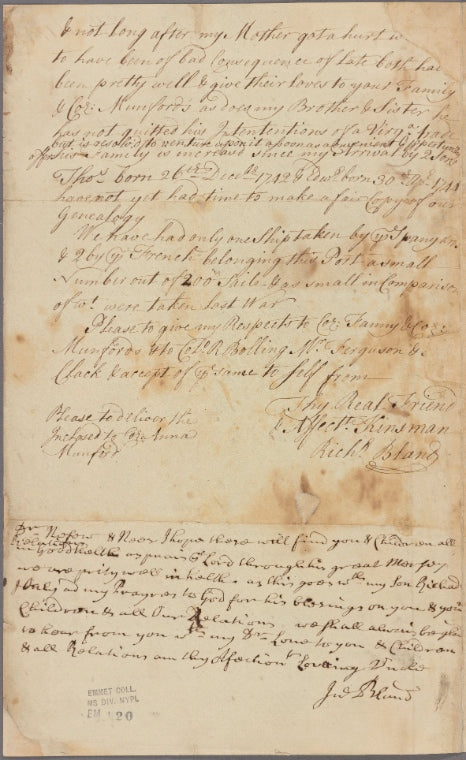 & not long after my Mother got a hurt w
to have been of bad Consequence of late both had
been pretty well & give their loves to your Family
& Coz: Munford's as does my Brother & Sister he
has not quitted his Intentions of a Virga. trade
but is resolved to venture upon it a soon as a convenient Opportunity
offers his Family is increased since my Arrival by 2 Sons
Thos. born 26th Decbr. 1742 & Edwd. born 30th 1744
have not yet had time to make a fair Copy of our
Genealogy
We have had only one Ship taken by ye. Spanyards
& 2 by ye. French belonging this Port a small
Number out of 200 Sail & as small in Comparison
of wt. were taken last War
Please to give my Respects to Coz: Fanny & Coz:
Munfords & to Colo. R Bolling Mr. Ferguson &
Clack & accept of ye. same to self from
Thy Real Friend
& Affect. Kinsman
Richd. Bland
Please to deliver the
Inclosed to Coz: Anna
Munford
Dr. Nefew & Nees I hope these will find you & Children all
Relations
in good health as praise ye Lord through his great Marsey
we are prity well in helth as this goes wth. my Son Richard
I only ad my Prayres to God for his blesings on you & your
Children & all Our Relations we shall always be glad
to hear from you wth. my Dr. Love to you & Children
& all Relations am thy Afection. Loveing Uncle
Jno Bland
EMMET COLL.
MS DIV. NYPL
EM 120